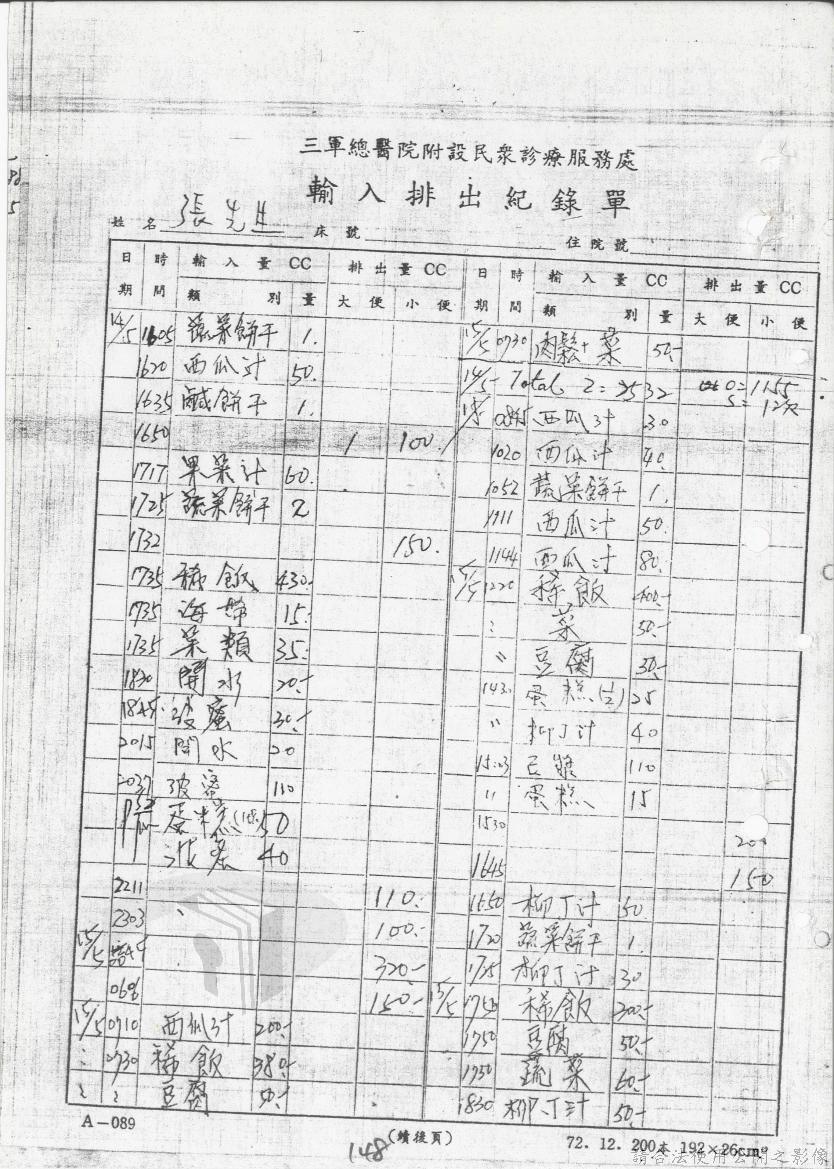 三軍總醫院附設民眾診療服務處
輸入排出紀錄單
姓名 張先生 床號 住院號
日期 時間 輸入量CC 類別 量 排出量CC 大便 小便
14/5 1605 蔬菜餅干 1.
1620 西瓜汁 50.
1635 鹹餅干 1.
1650 1 100
1717 果菜汁 60.
1725 蔬菜餅干 2
1732 150.
1735 稀飯 430.-
1735 海帶 15.-
1735 菜類 35.-
1830 開水 20.-
1845. 30.-
2015 開水 20
2037 110
蛋糕 50
40
2211 110.-
2303 100.-
15/5 320.-
150.-
15/5 0710 西瓜汁 200.-
: 0730 稀飯 380.-
豆腐 50.-
日期 時間 輸入量CC 類別 量 排出量CC 大便 小便
15/5 0730 肉鬆+菜 50.-
14/5 Total I=2532 O=1155
S=12次
15/5 0845 西瓜汁 30
1020 西瓜汁 40.
1052 蔬菜餅干 1.
西瓜汁 50.
1144 西瓜汁 80.
15/5 1220 稀飯 400.-
: 菜 50.-
〃 豆腐 30.-
1430 蛋糕(1/2) 25
〃 柳丁汁 40
15:03 豆漿 110
〃 蛋糕 15
1530 200
1645 150
1650 柳丁汁 50.
1720 蔬菜餅干 1.
1725 柳丁汁 30
15/5 1750 稀飯 200.-
1750 豆腐 50.-
1750 蔬菜 60.-
1830 柳丁汁 50.-
A-089
(續後頁)
72.12.200本 192×26cm²
148
請合法使用公開之影像